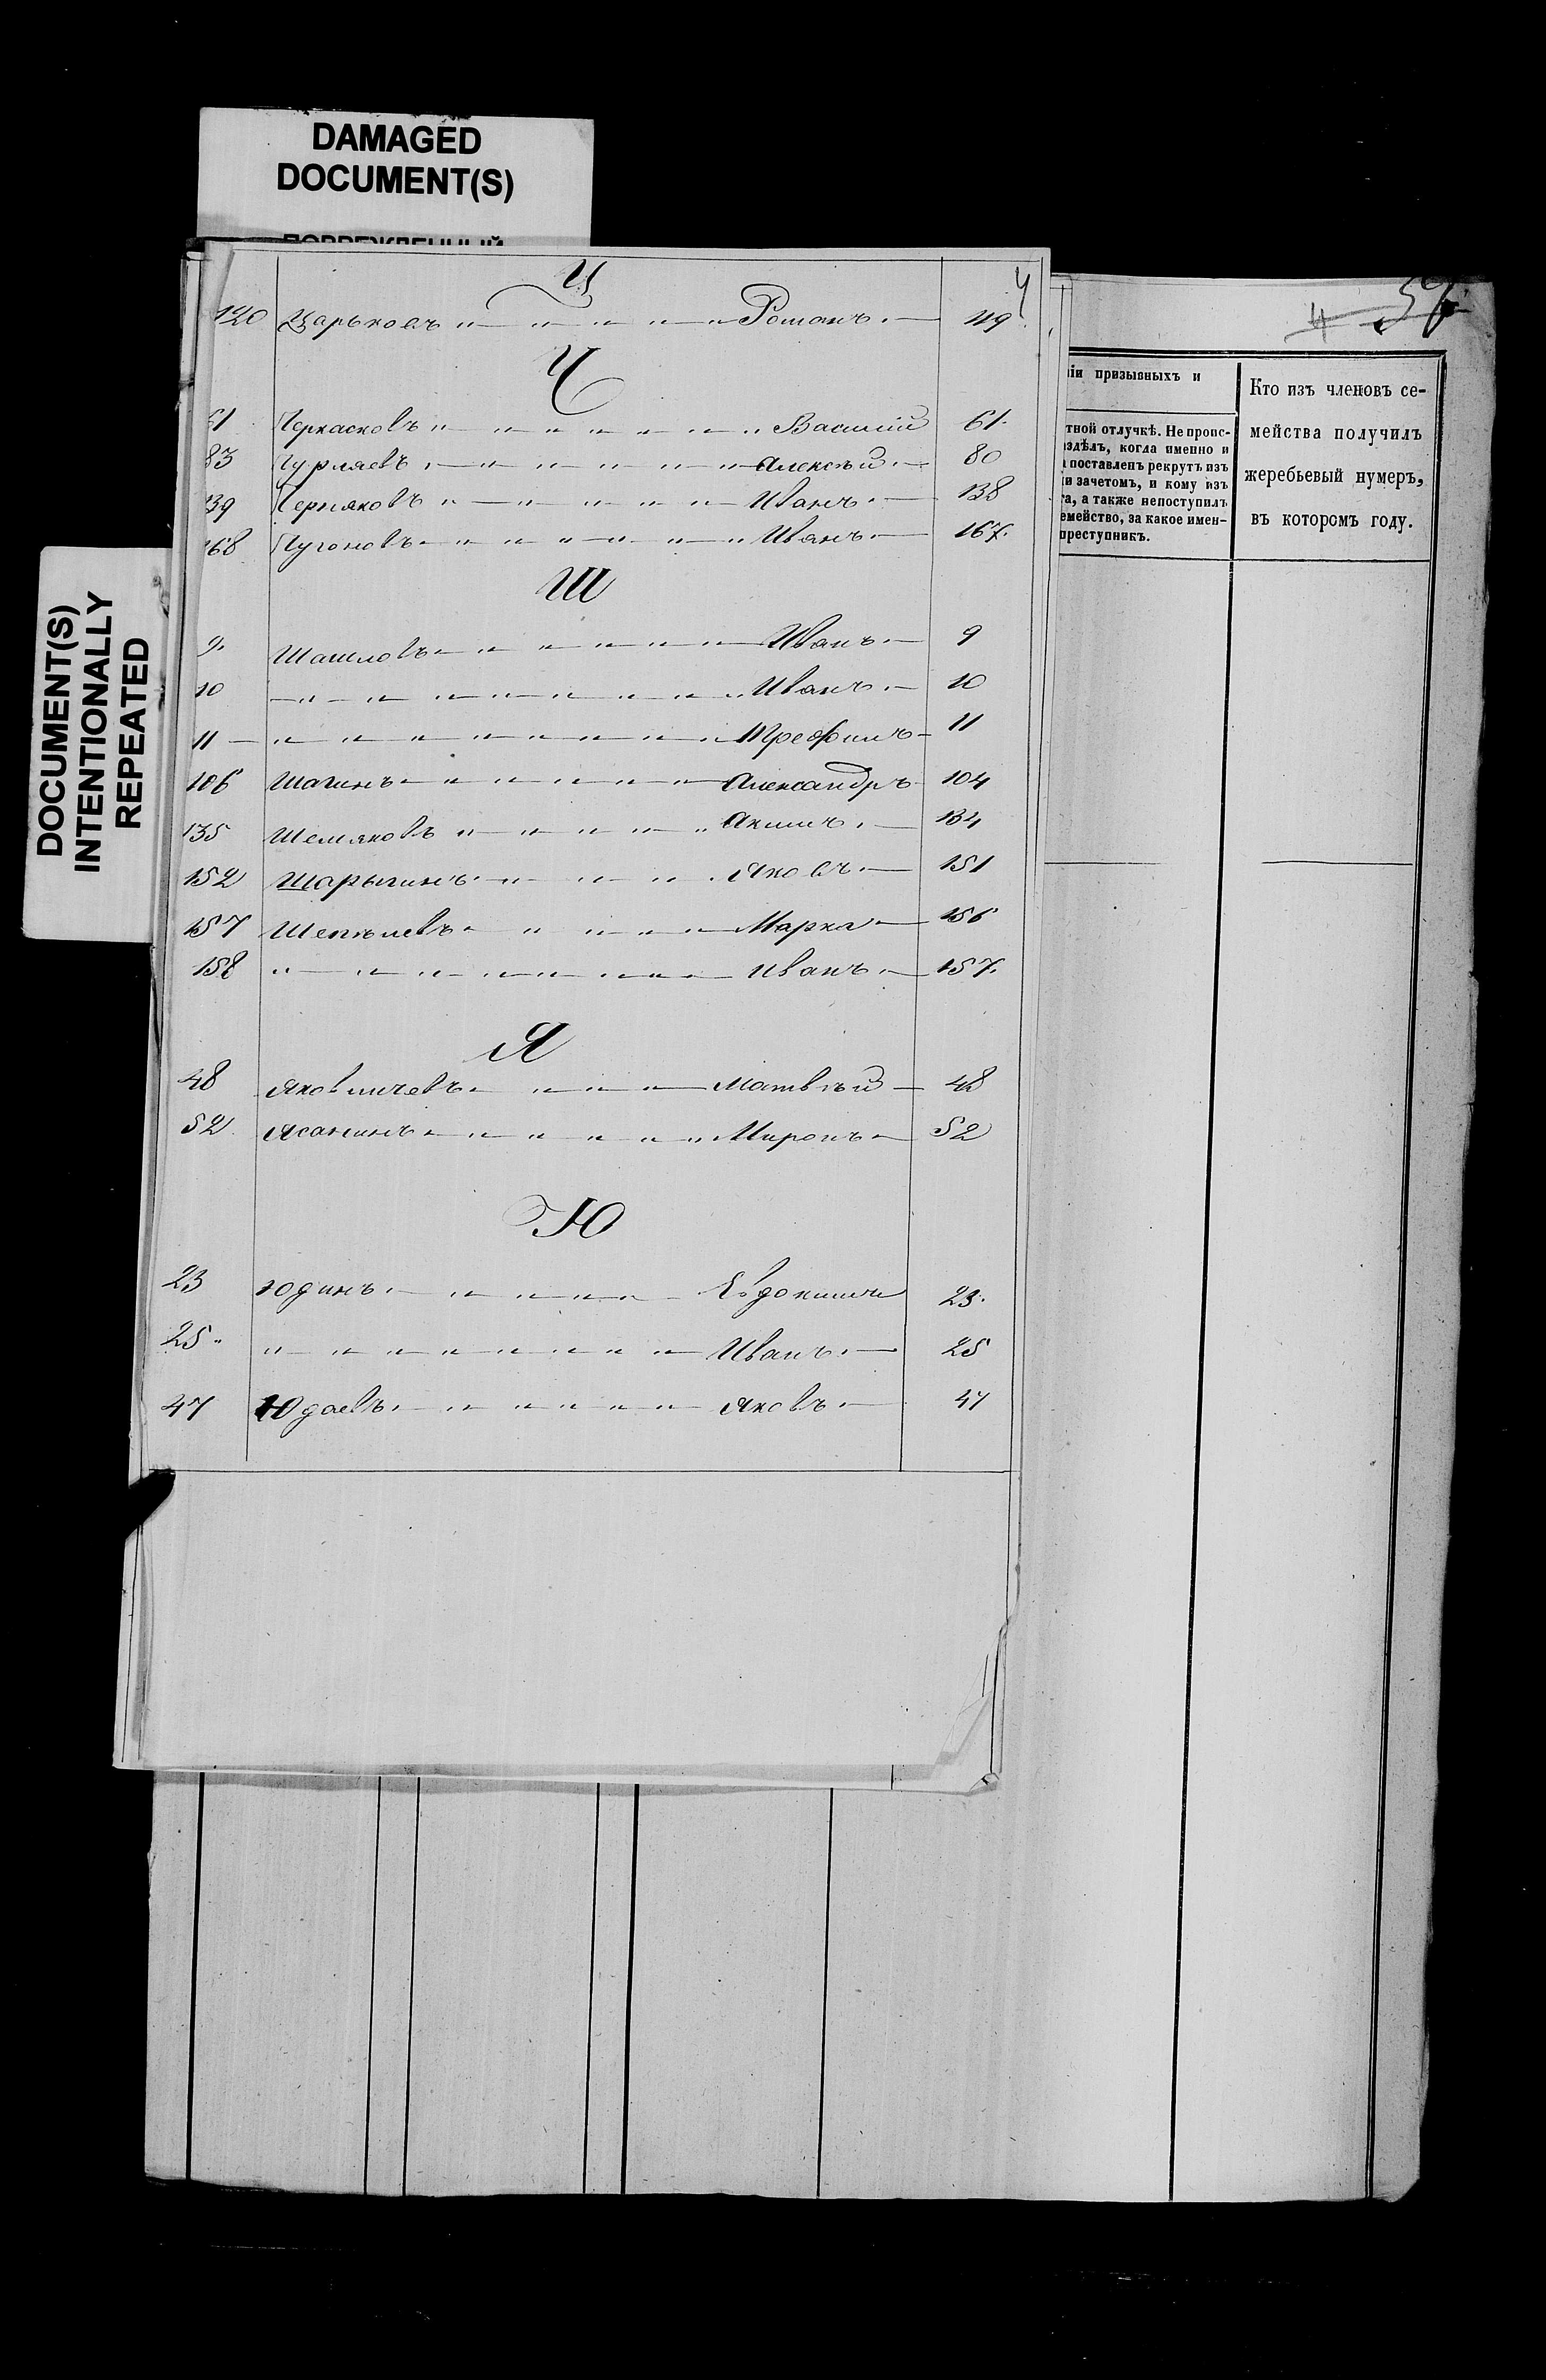 DAMAGED
DOCUMENT(S)
DOCUMENT(S)
INTENTIONALLY
REPEATED
4
Ц
120 Царьковъ " " " " " Романъ. 119.
Ч
61 Черкасковъ " " " " " " Василій 61.
83 Чурляевъ " " " " " Алексѣй. 80
139 Черняковъ " " " " " Иванъ. 138
168 Чугоновъ " " " " " " Иванъ. 167.
Ш
9. Шашловъ " " " " " Иванъ. 9
10 " " " " " " " " Иванъ. 10
11 " " " " " " " " Трефилъ 11
106 Шагинъ " " " " " " Александръ 104
135 Шемяковъ " " " " " Акимъ. 134
152 Шарыгинъ " " " " Яковъ. 151
157 Шепѣлевъ " " " " Марка 156
158 " " " " " " " " Иванъ. 157.
Я
48 Яковличевъ " " " " Матвѣй 48
52 Ясанинъ " " " " " " Миронъ 52
Ю
23 Юдинъ. " " " " " Евдокимъ 23.
25. " " " " " " " " Иванъ. 25
47 Юдаевъ. " " " " " Яковъ. 47
ніи призывныхъ и
тной отлучкѣ. Не проис-
здѣлъ, когда именно и
поставленъ рекрутъ изъ
и зачетомъ, и кому изъ
та, а также непоступилъ
емейство, за какое имен-
преступникъ.
Кто изъ членовъ се-
мейства получилъ
жеребьевый нумеръ,
въ которомъ году.